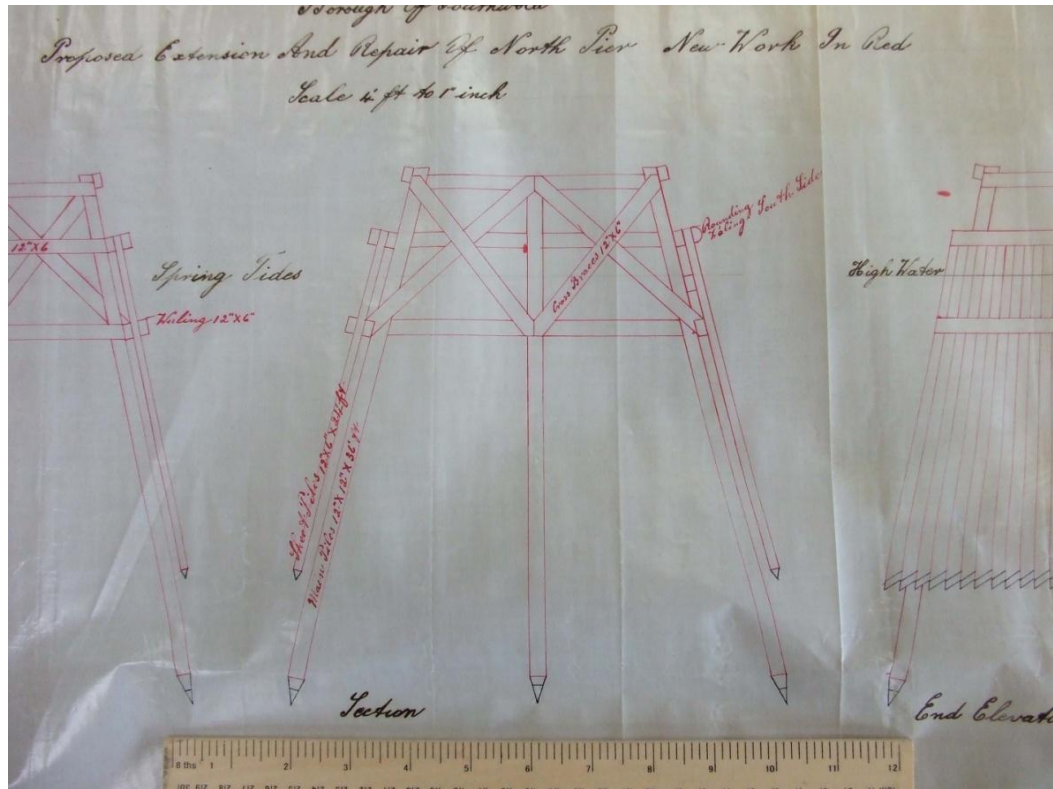 Borough Of
Proposed Extension And Repair Of North Pier New Work In Red
Scale 4 ft to 1 inch
12"X6
Spring Tides
Waling 12"X6"
Sheet Piles 12"X6"X24 ft
Main Piles 12"X12"X36 ft
Cross Braces 12"X6"
Rounding
Waling South Side
High Water
Section
End Elevati
8 ths 1 2 3 4 5 6 7 8 9 10 11 12